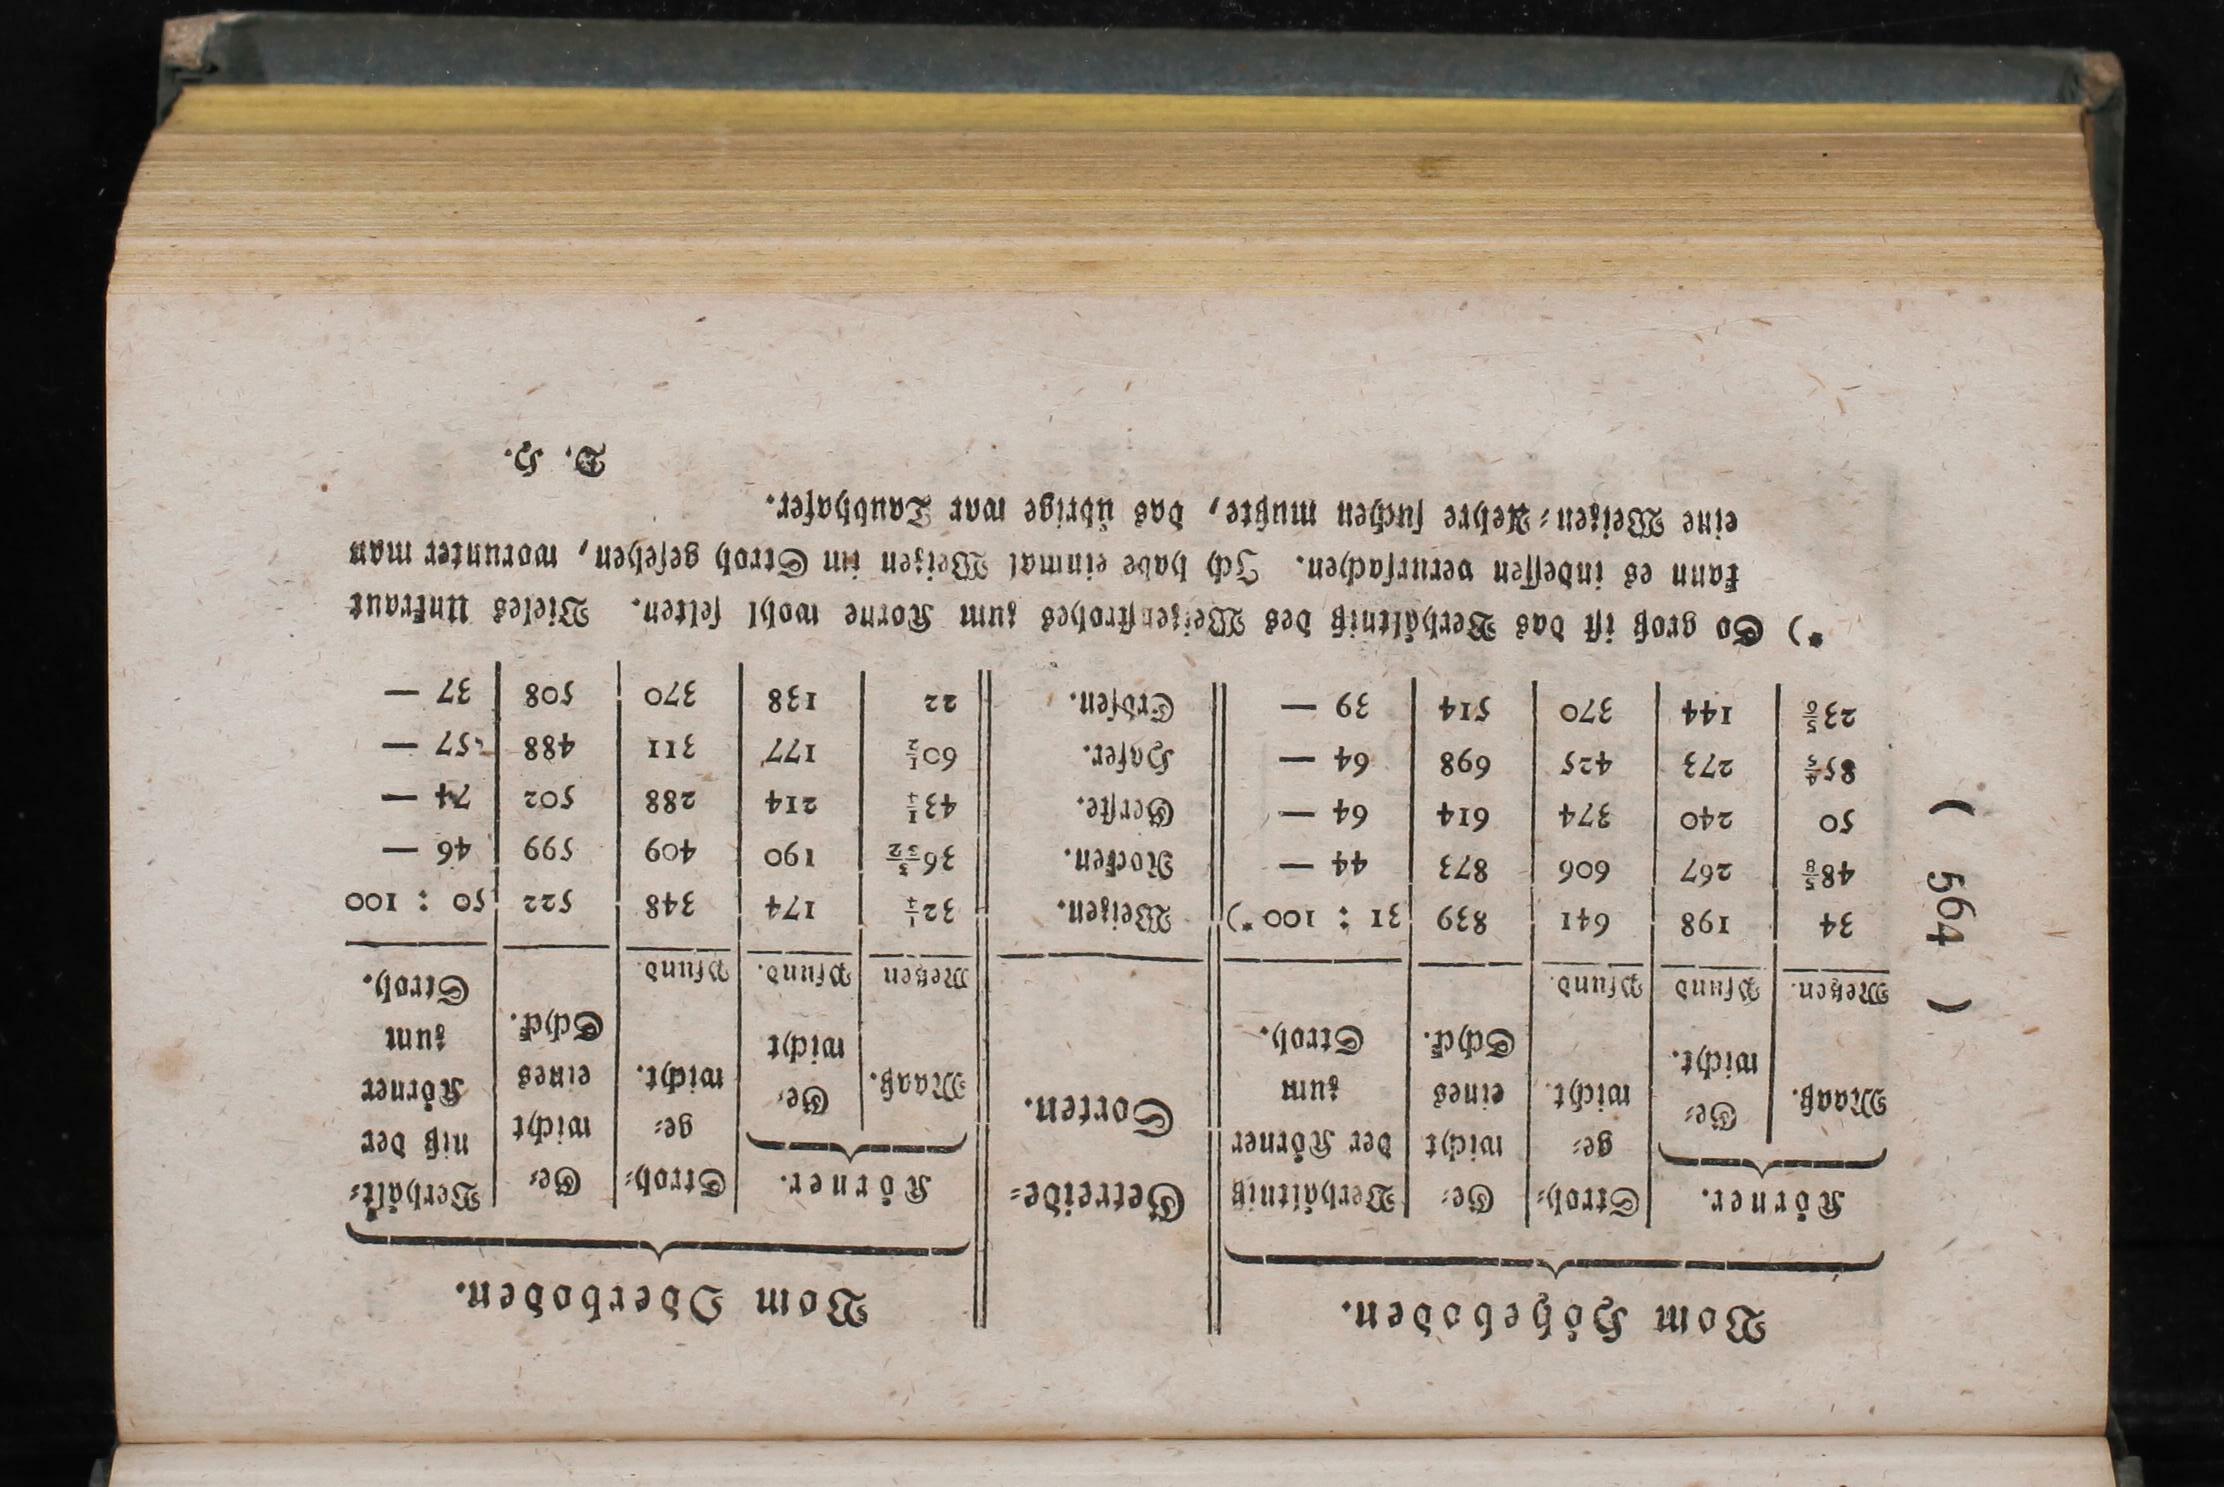 ( 564 )
Vom Höheboden. Vom Oderboden.
Körner. Stroh= Ge= Verhältniß Getreide= Körner. Stroh= Ge= Verhält=
ge= wicht der Körner ge= wicht niß der
Maaß. Ge= wicht. eines zum Sorten. Maaß. Ge= wicht. eines Körner
wicht. Schck. Stroh. wicht Schck. zum
Metzen. Pfund Pfund. Metzen Pfund. Pfund. Stroh.
34 198 641 839 31 : 100 *) Weizen. 32¼ 174 348 522 50 : 100
48⅝ 267 606 873 44 — Rocken. 36 3/32 190 409 599 46 —
50 240 374 614 64 — Gerste. 43¼ 214 288 502 74 —
85⅘ 273 425 698 64 — Hafer. 60½ 177 311 488 57 —
23⅚ 144 370 514 39 — Erbsen. 22 138 370 508 37 —
*) So groß ist das Verhältniß des Weizenstrohes zum Korne wohl selten. Vieles Unkraut
kann es indessen verursachen. Ich habe einmal Weizen im Stroh gesehen, worunter man
eine Weizen=Aehre suchen mußte, das übrige war Taubhafer.
D. H.